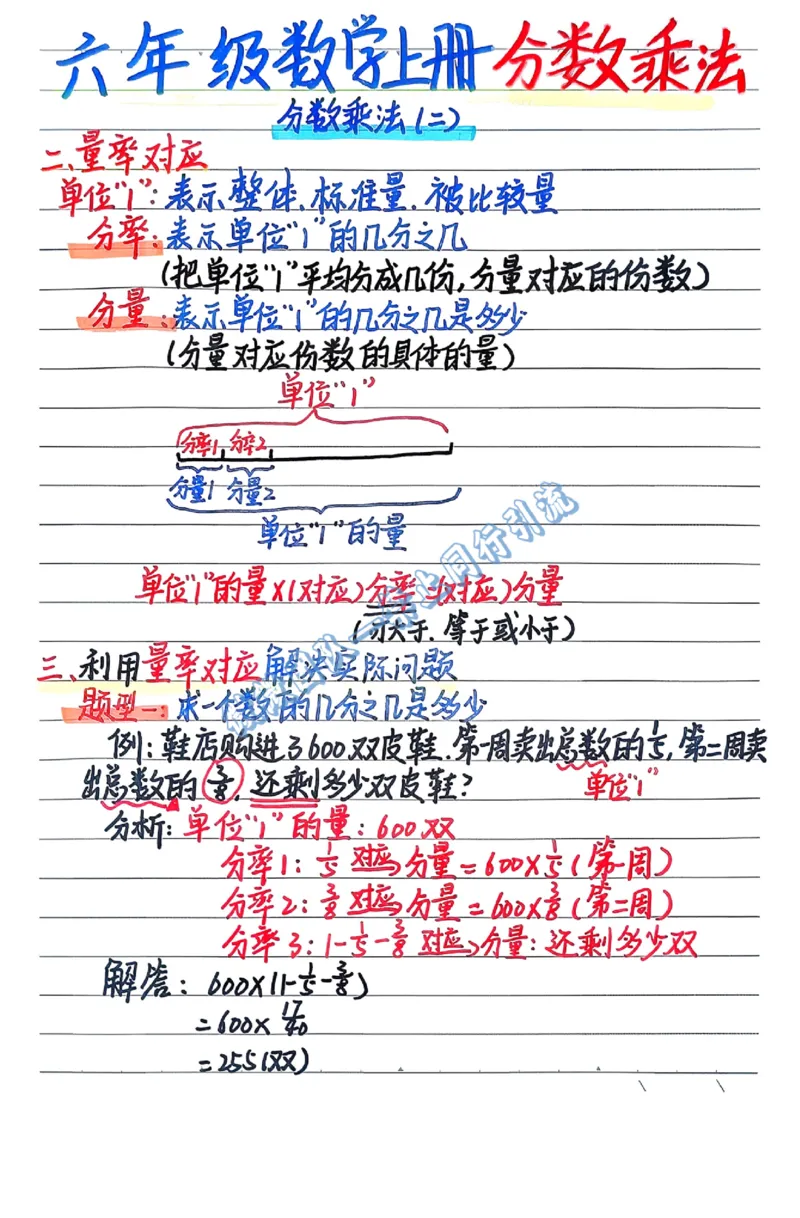 六年级数学上册分数乘法
分数乘法(二)
二、量率对应
单位"1":表示整体、标准量、被比较量
分率:表示单位"1"的几分之几
(把单位"1"平均分成几份,分量对应的份数)
分量:表示单位"1"的几分之几是多少
(分量对应份数的具体的量)
单位"1"
分率1 分率2
分量1 分量2
单位"1"的量
单位"1"的量×(对应)分率=(对应)分量
(可大于、等于或小于)
三、利用量率对应解决实际问题
题型一:求一个数的几分之几是多少
例:鞋店购进3600双皮鞋.第一周卖出总数的1/5,第二周卖
出总数的3/8,还剩多少双皮鞋?
单位"1"
分析:单位"1"的量:600双
分率1:1/5 对应→分量=600×1/5(第一周)
分率2:3/8 对应→分量=600×3/8(第二周)
分率3:1-1/5-3/8 对应→分量:还剩多少双
解答:600×(1-1/5-3/8)
=600×17/40
=255(双)